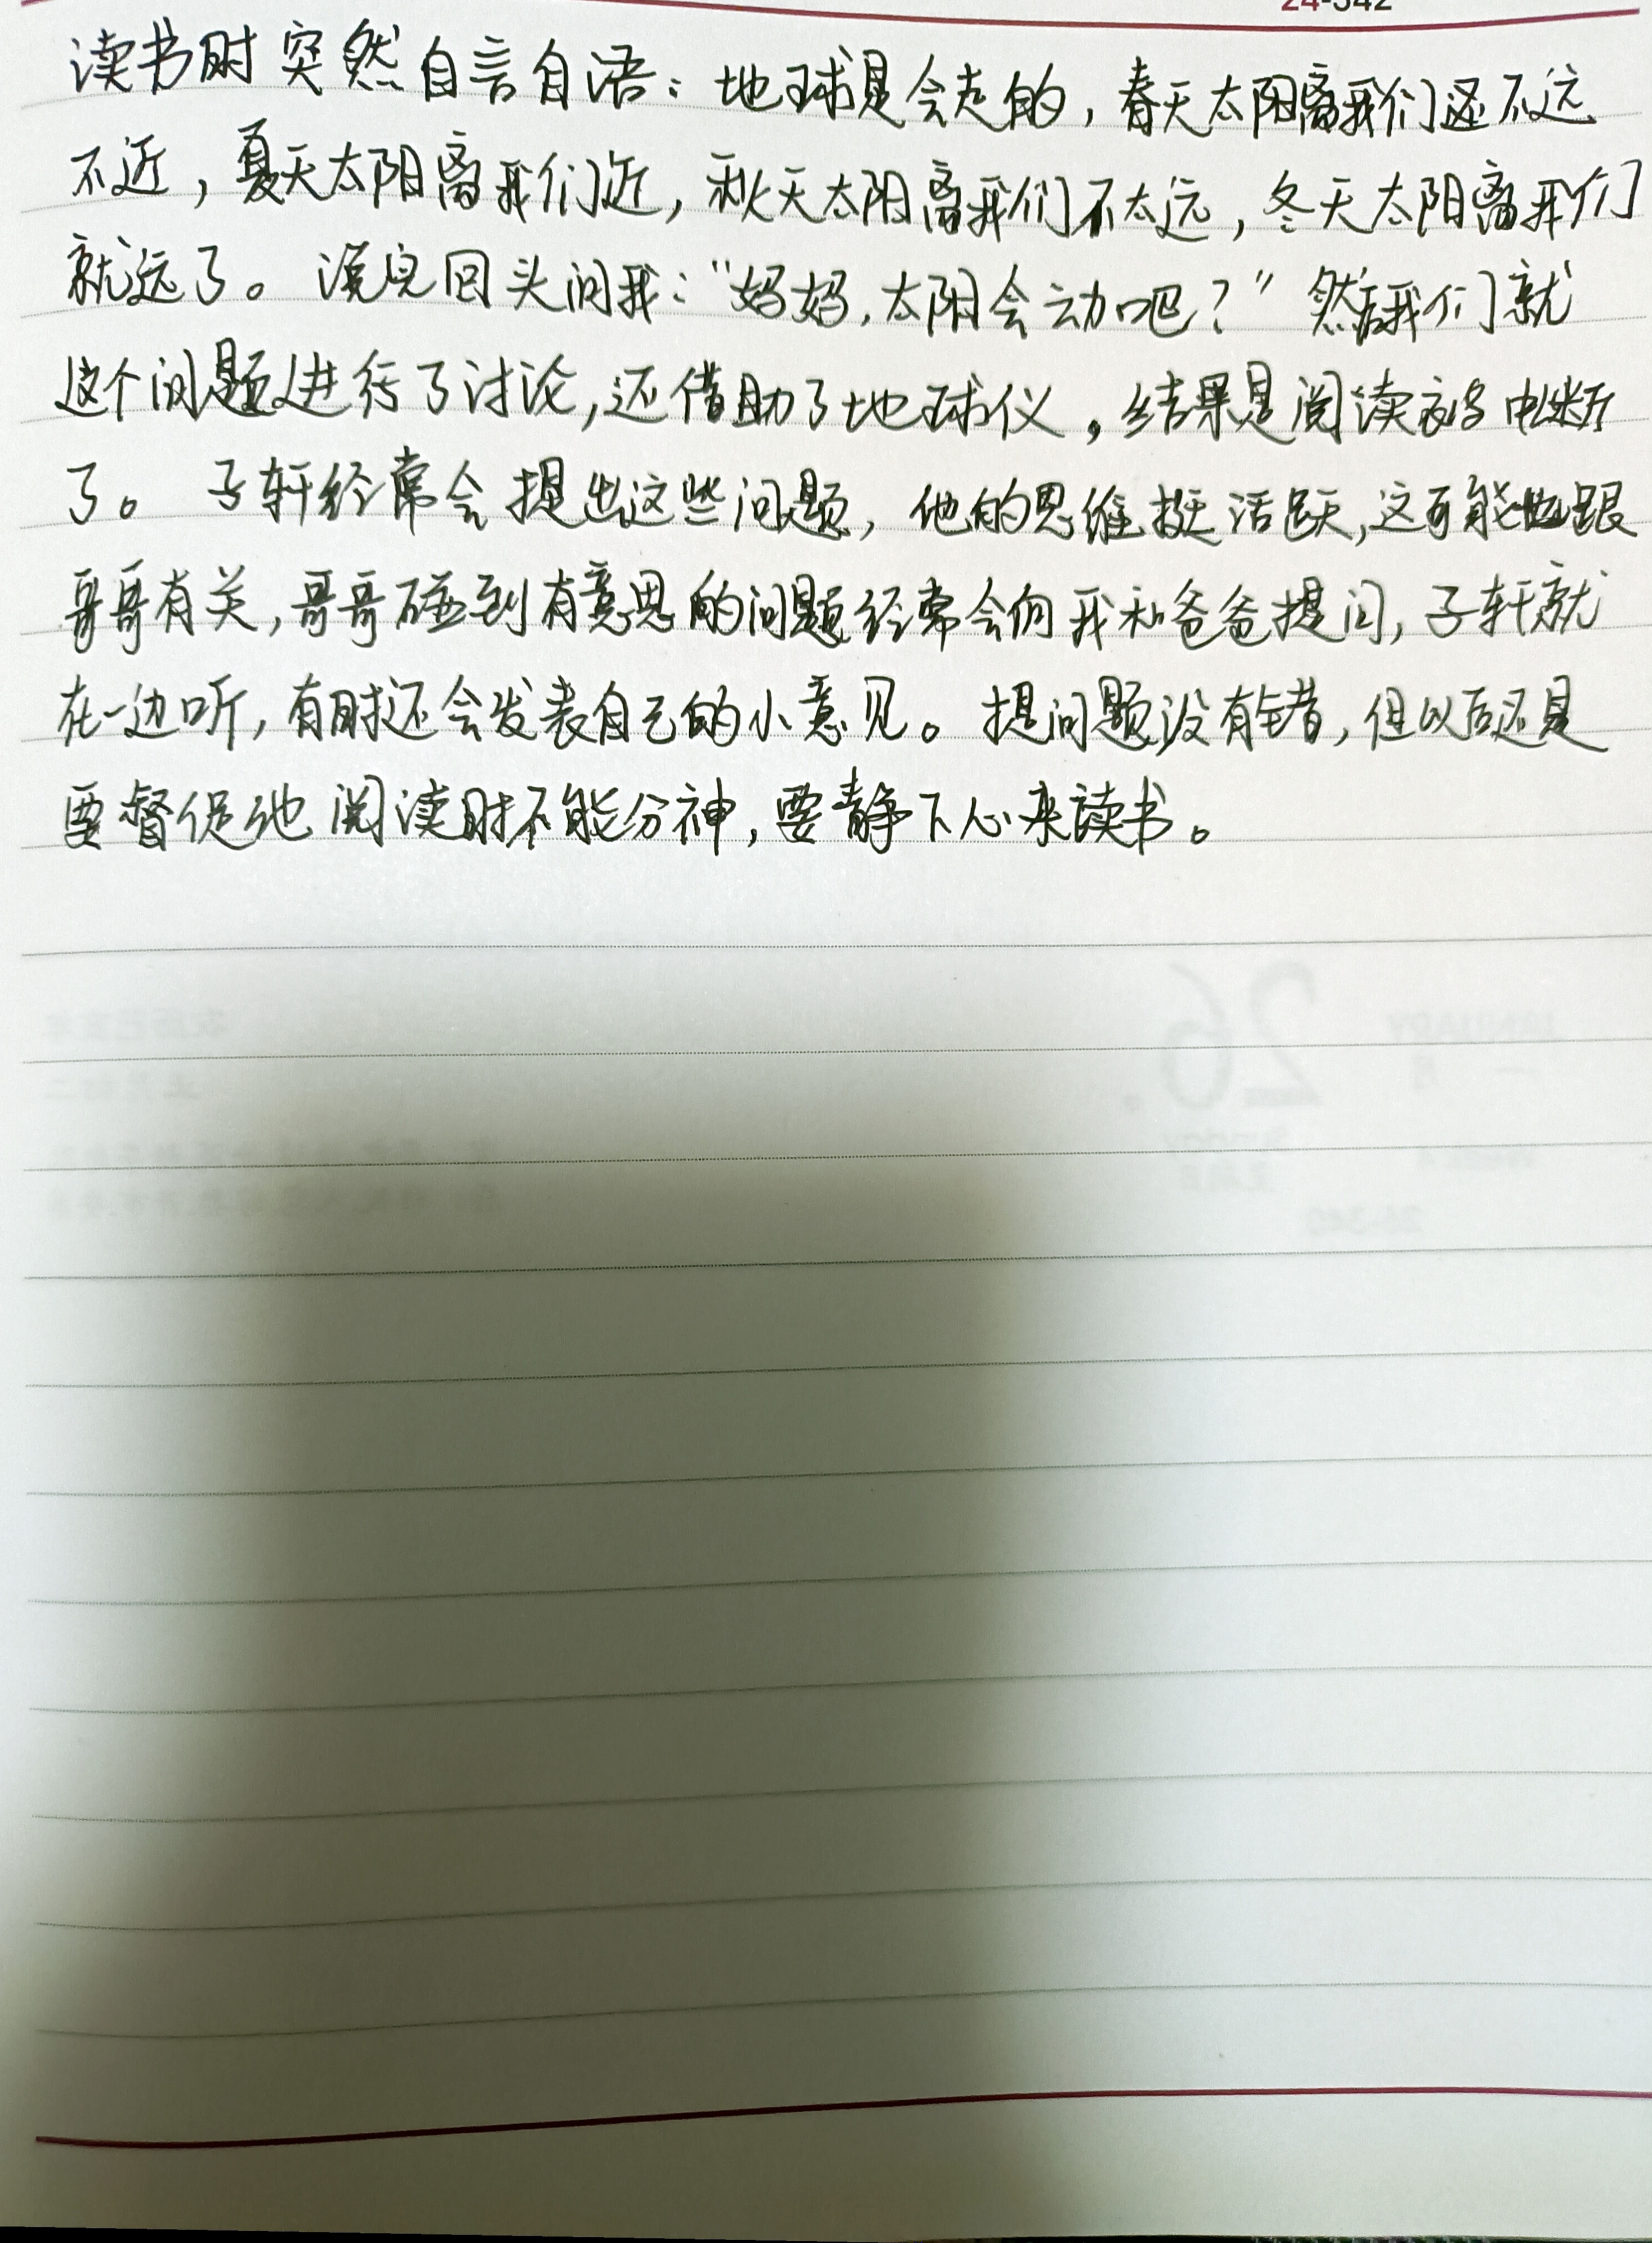 24-342
读书时突然自言自语：地球是会走的，春天太阳离我们还不远
不近，夏天太阳离我们近，秋天太阳离我们不太远，冬天太阳离我们
就远了。没完回头问我：“妈妈，太阳会动吧？”然后我们就
这个问题进行了讨论，还借助了地球仪，结果是阅读被中断
了。子轩经常会提出这些问题，他的思维挺活跃，这可能也跟
哥哥有关，哥哥碰到有意思的问题经常会向我和爸爸提问，子轩就
在一边听，有时还会发表自己的小意见。提问题没有错，但以后还是
要督促他阅读时不能分神，要静下心来读书。